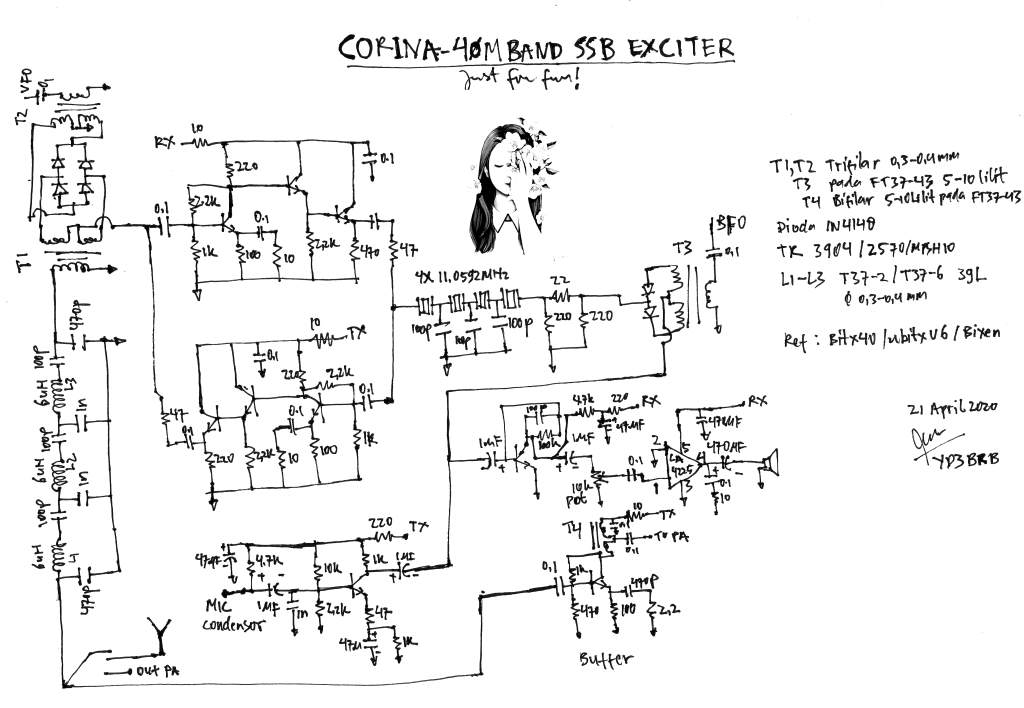 CORINA-40M BAND SSB EXCITER
Just for fun!
VFO
0,1
T2
T1
RX
10
220
0.1
2.2K
0.1
0.1
1K
100
10
2,2K
470
47
T1,T2 Trifilar 0,3-0,4mm
T3 pada FT37-43 5-10 lilit
T4 Bifilar 5-10 lilit pada FT37-43
Dioda IN4148
TR 3904/2570/MPSH10
L1-L3 T37-2/T37-6 39L
Ø 0,3-0,4 mm
Ref : Bitx40/ubitxV6/Bixen
21 April 2020
YD3BRB
BFO
0,1
T3
4X 11,0592MHz
22
100p
100p
220
220
10
TX
0,1
220
2,2K
0.1
0.1
47
0,1
220
2,2K
10
100
1K
470p
100p
L3
1n
100p
L2
1n
100p
L1
470p
4,7K
220
RX
100p
100K
1MF
1MF
47MF
10K
pot
0.1
2
5
1
3
RX
470MF
470MF
0.1
10
T4
10
TX
0,1
TO PA
0,1
1K
470
100
470p
2,2
Buffer
220
TX
4,7K
10K
1K
1MF
1MF
1n
2,2K
47
47M
1K
MIC
condensor
OUT PA